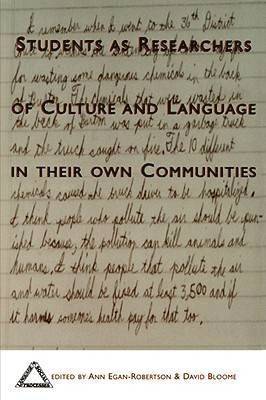 I remember when I went to the 36th District
STUDENTS AS RESEARCHERS
for wasting some dangerous chemicals in the back
OF CULTURE AND LANGUAGE
the back of Burton was put in a garbage truck
and the truck caught on fire. The 10 different
IN THEIR OWN COMMUNITIES
chemicals caused the truck driver to be hospitalized.
I think people who pollute the air should be pun-
ished because, the pollution can kill animals and
humans. I think people that pollute the air
and water should be fined at least 3,500 and if
it harms someones health pay for that too.
LANGUAGE & SOCIAL PROCESSES
EDITED BY ANN EGAN-ROBERTSON & DAVID BLOOME